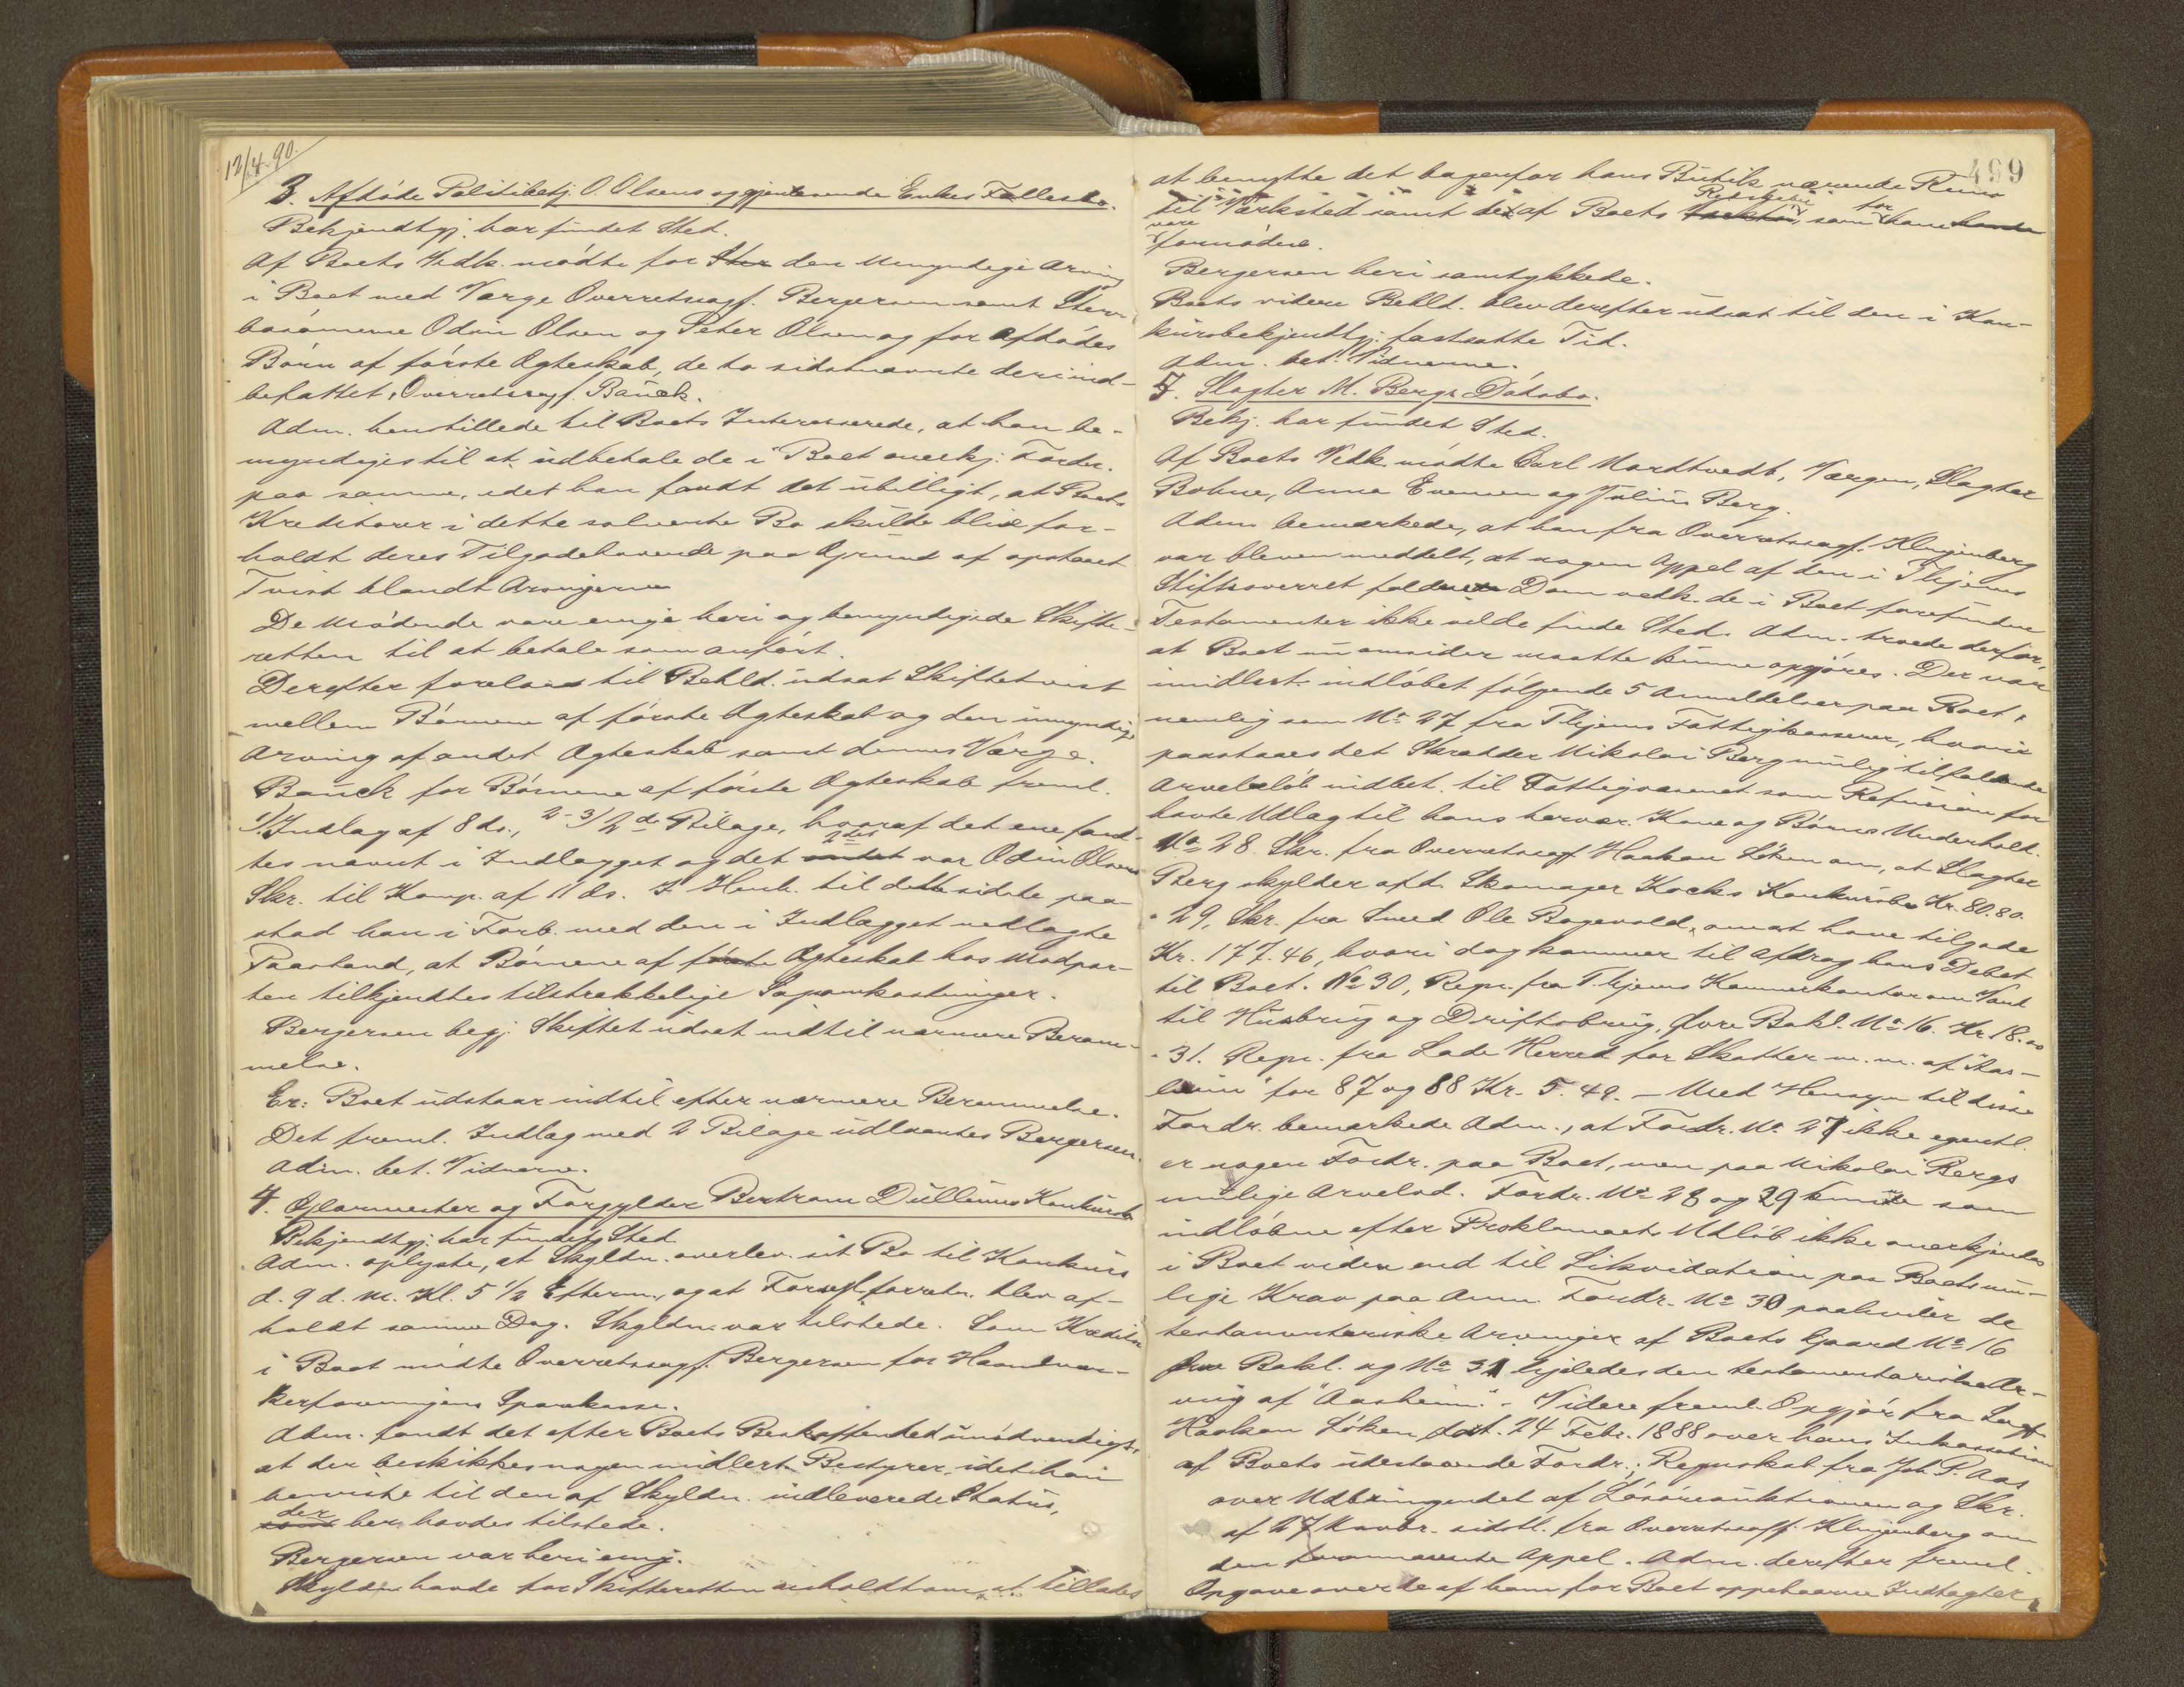 12/4 90.
3. Afdøde Politibetj. O. Olsens og gjenlevende Enkes Fællesbo.
Bekjendtgj. har fundet Sted.
Af Boets Vedk. mødte for den umyndige Arving
i Boet med Værge Overretssagf. Bergersen samt Sterv-
bosønnerne Odin Olsen og Peter Olsen og for Afdødes
Børn af første Ægteskab, de to sidstnævnte deri ind-
befattet, Overretssagf. Bauck.
Adm. henstillede til Boets Interesserede, at han be-
myndiges til at udbetale de i Boet anerkj. Fordr.
paa samme, idet han fandt det ubilligt, at Boets
Kreditorer i dette solvente Bo skulde blive for-
holdt deres Tilgodehavende paa Grund af opstaaet
Tvist blandt Arvingerne
De mødende vare enige heri og bemyndigede Skifte-
retten til at betale som anført.
Derefter forelaa til Behld. udsat Skiftetvist
mellem Børnene af første Ægteskab og den umyndige
Arving af andet Ægteskab samt dennes Værge.
Bauck for Børnene af første Ægteskab freml.
1/ Indlæg af 8 ds., 2-3/ 2de Bilage, hvoraf det ene fand-
tes nævnt i Indlægget og det 2det var Odin Olsens
Skr. til Komp. af 11 ds. I Henh. til dette sidste paa-
stod han i Forb. med den i Indlægget nedlagte
Paastand, at Børnene af første Ægteskab hos Modpar-
ten tilkjendtes tilstrækkelige Sagsomkostninger.
Bergersen begj. Skiftet udsat indtil nærmere Beram-
melse.
Er: Boet udstaar indtil efter nærmere Berammelse.
Det freml. Indlæg med 2 Bilage udlaantes Bergersen.
Adm. bet. Vidnerne.
4. Glarmester og Forgylder Bertram Dullums Konkursbo
Bekjendtgj. har fundet Sted.
Adm. oplyste, at Skyldn. overlev. sit Bo til Konkurs
d. 9 d. M. Kl. 5 1/2 Efterm., og at Forsegl.forretn. blev af-
holdt samme Dag. Skyldn. var tilstede. Som Kreditor
i Boet mødte Overretssagf. Bergersen for Haandvær-
kerforeningens Sparekasse.
Adm. fandt det efter Boets Beskaffenhed unødvendigt,
at der beskikkes nogen midlert. Bestyrer, idet han
henviste til den af Skyldn. indleverede Status,
der her havdes tilstede.
Bergersen var heri enig.
Skyldn. havde for Skifteretten anholdt om at tillades
499
at benytte det bagenfor hans Butik værende Rum
til Værksted samt det af Boets Redskaber, som for ham
vare
fornødne.
Bergersen heri samtykkede.
Boets videre Behld. blev derefter udsat til den i Kon-
kursbekjendtgj. fastsatte Tid.
Adm. bet. Vidnerne.
5. Slagter M. Bergs Dødsbo.
Bekj. har fundet Sted.
Af Boets Vedk. mødte Carl Nordtvedt, Værgen, Slagter
Bohne, Anna Evensen og Julius Berg.
Adm. bemærkede, at han fra Overretssagf. Klingenberg
var bleven meddelt, at nogen Appel af den i Thjems
Stiftsoverret faldne Dom vedk. de i Boet forefundne
Testamenter ikke vilde finde Sted. Adm. troede derfor,
at Boet nu omsider maatte kunne opgjøres. Der var
imidlert. indløbet følgende 5 Anmeldelser paa Boet,
nemlig som No 27 fra Thjems Fattigkasserer, hvori
paastaaes det Skrædder Nikolai Berg mulig tilfaldende
Arveløb indbet. til Fattigvæsenet som Refusion for
havte Udlæg til hans herv. Kone og Børns Underhold.
No 28. Skr. fra Overretssagf. Haakon Løken om, at Slagter
Berg skylder afd. Skomager Kocks Konkursbo Kr. 80.80.
" 29, Skr. fra Smed Ole Bogevold, om at have tilgode
Kr. 177.46, hvori dog kommer til Afdrag hans Debet
til Boet. No 30, Regn. fra T.hjems Kæmnerkontor om Vand
til Husbrug og Driftsbrug, Øvre Bakl. No 16. Kr. 18.00
" 31. Regn. fra Lade Herred for Skatter m. m. af "Aas-
heim" for 87 og 88 Kr. 5.49. – Med Hensyn til disse
Fordr. bemærkede Adm., at Fordr. No 27 ikke egentl.
er nogen Fordr. paa Boet, men paa Nikolai Bergs
mulige Arvelod. Fordr. No 28 og 29 kunde som
indløbne efter Proklamaets Udløb ikke anerkjendes
i Boet videre end til Likvidation paa Boets mu-
lige Krav paa Anm. Fordr. No 30 paahviler de
testamentariske Arvinger af Boets Gaard No 16
Øvre Bakl. og No 31 ligeledes den testamentariske Ar-
ving af "Aasheim". Videre freml. Opgjør fra Sagf.
Haakon Løken dat. 24 Febr. 1888 over hans Inkassation
af Boets udestaaende Fordr.; Regnskab fra Joh. P. Aas
over Udbringendet af Løsøreauktionen og Skr.
af 27 Novbr. sidstl. fra Overretssagf. Klingenberg om
den fornævnte Appel. Adm. derefter freml.
Opgave over de af ham for Boet oppebaarne Indtægter